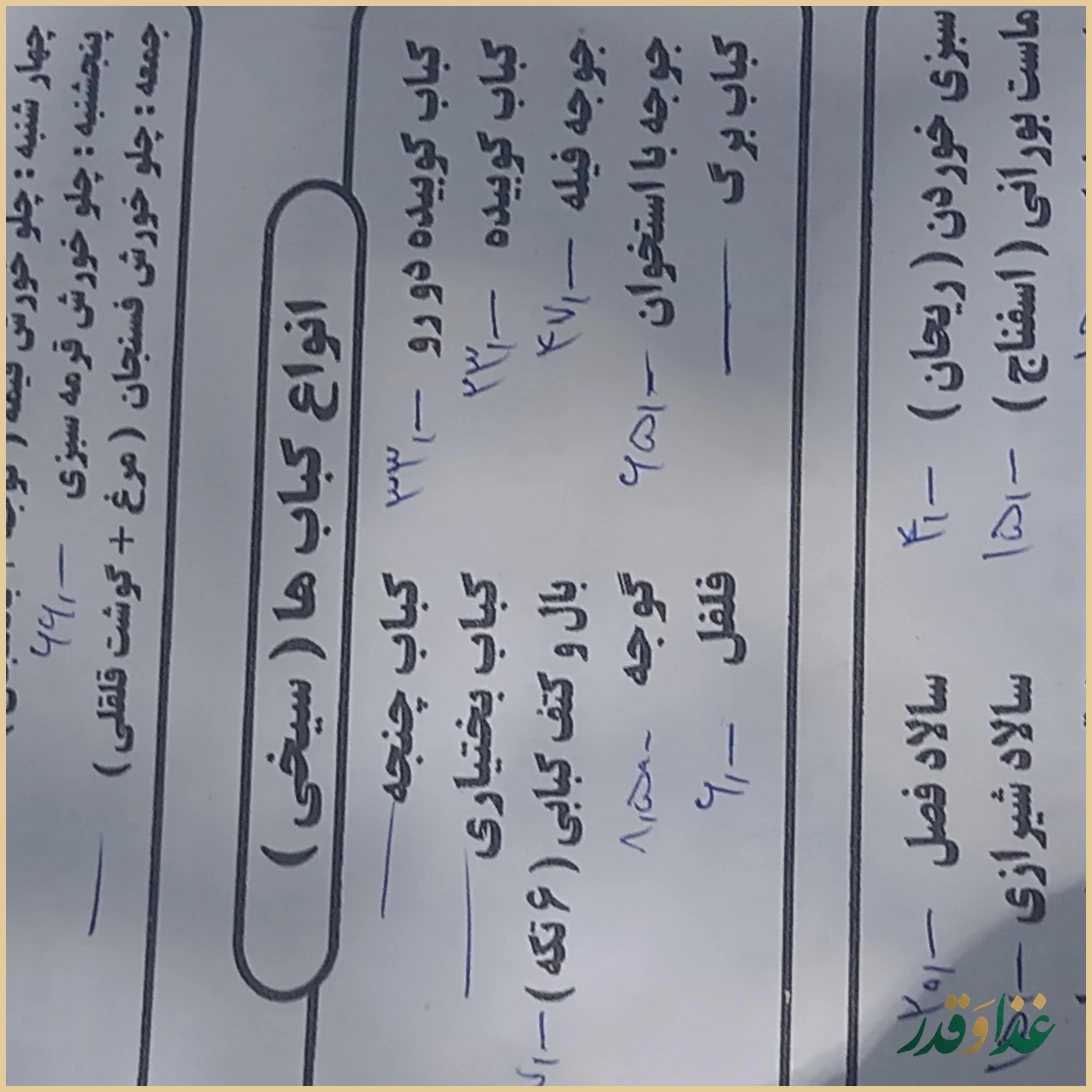 چهار شنبه : چلو خورش قیمه (
پنجشنبه : چلو خورش قرمه سبزی ۶۶٫-
جمعه : چلو خورش فسنجان ( مرغ + گوشت قلقلی )
انواع کباب ها ( سیخی )
کباب کوبیده دو رو ۳۳٫-
کباب چنجه
کباب کوبیده ۲۳٫-
کباب بختیاری
جوجه فیله ۴۷٫-
بال و کتف کبابی ( ۶ تکه )
جوجه با استخوان ۶۵٫-
گوجه ۸٫۵۰۰
کباب برگ
فلفل ۶٫-
سبزی خوردن ( ریحان ) ۴٫-
سالاد فصل ۲۰٫-
ماست بورانی ( اسفناج ) ۱۵٫-
سالاد شیرازی
غذا و قدر